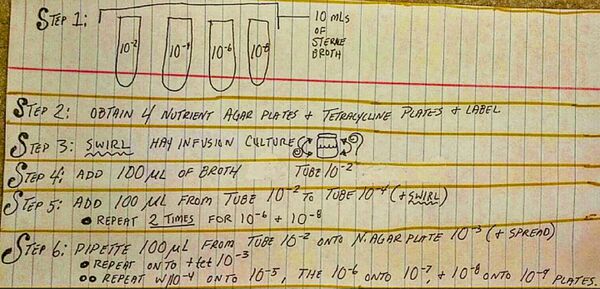 STEP 1:
10 MLS
OF
STERILE
BROTH
10⁻² 10⁻⁴ 10⁻⁶ 10⁻⁸
STEP 2: OBTAIN 4 NUTRIENT AGAR PLATES + TETRACYCLINE PLATES + LABEL
STEP 3: SWIRL HAY INFUSION CULTURE
STEP 4: ADD 100 µL OF BROTH TUBE 10⁻²
STEP 5: ADD 100 µL FROM TUBE 10⁻² TO TUBE 10⁻⁴ (+ SWIRL)
● REPEAT 2 TIMES FOR 10⁻⁶ + 10⁻⁸
STEP 6: PIPETTE 100 µL FROM TUBE 10⁻² ONTO N. AGAR PLATE 10⁻³ (+ SPREAD)
● REPEAT ONTO +tet 10⁻³
●● REPEAT W/10⁻⁴ ONTO 10⁻⁵, THE 10⁻⁶ ONTO 10⁻⁷, + 10⁻⁸ ONTO 10⁻⁹ PLATES.